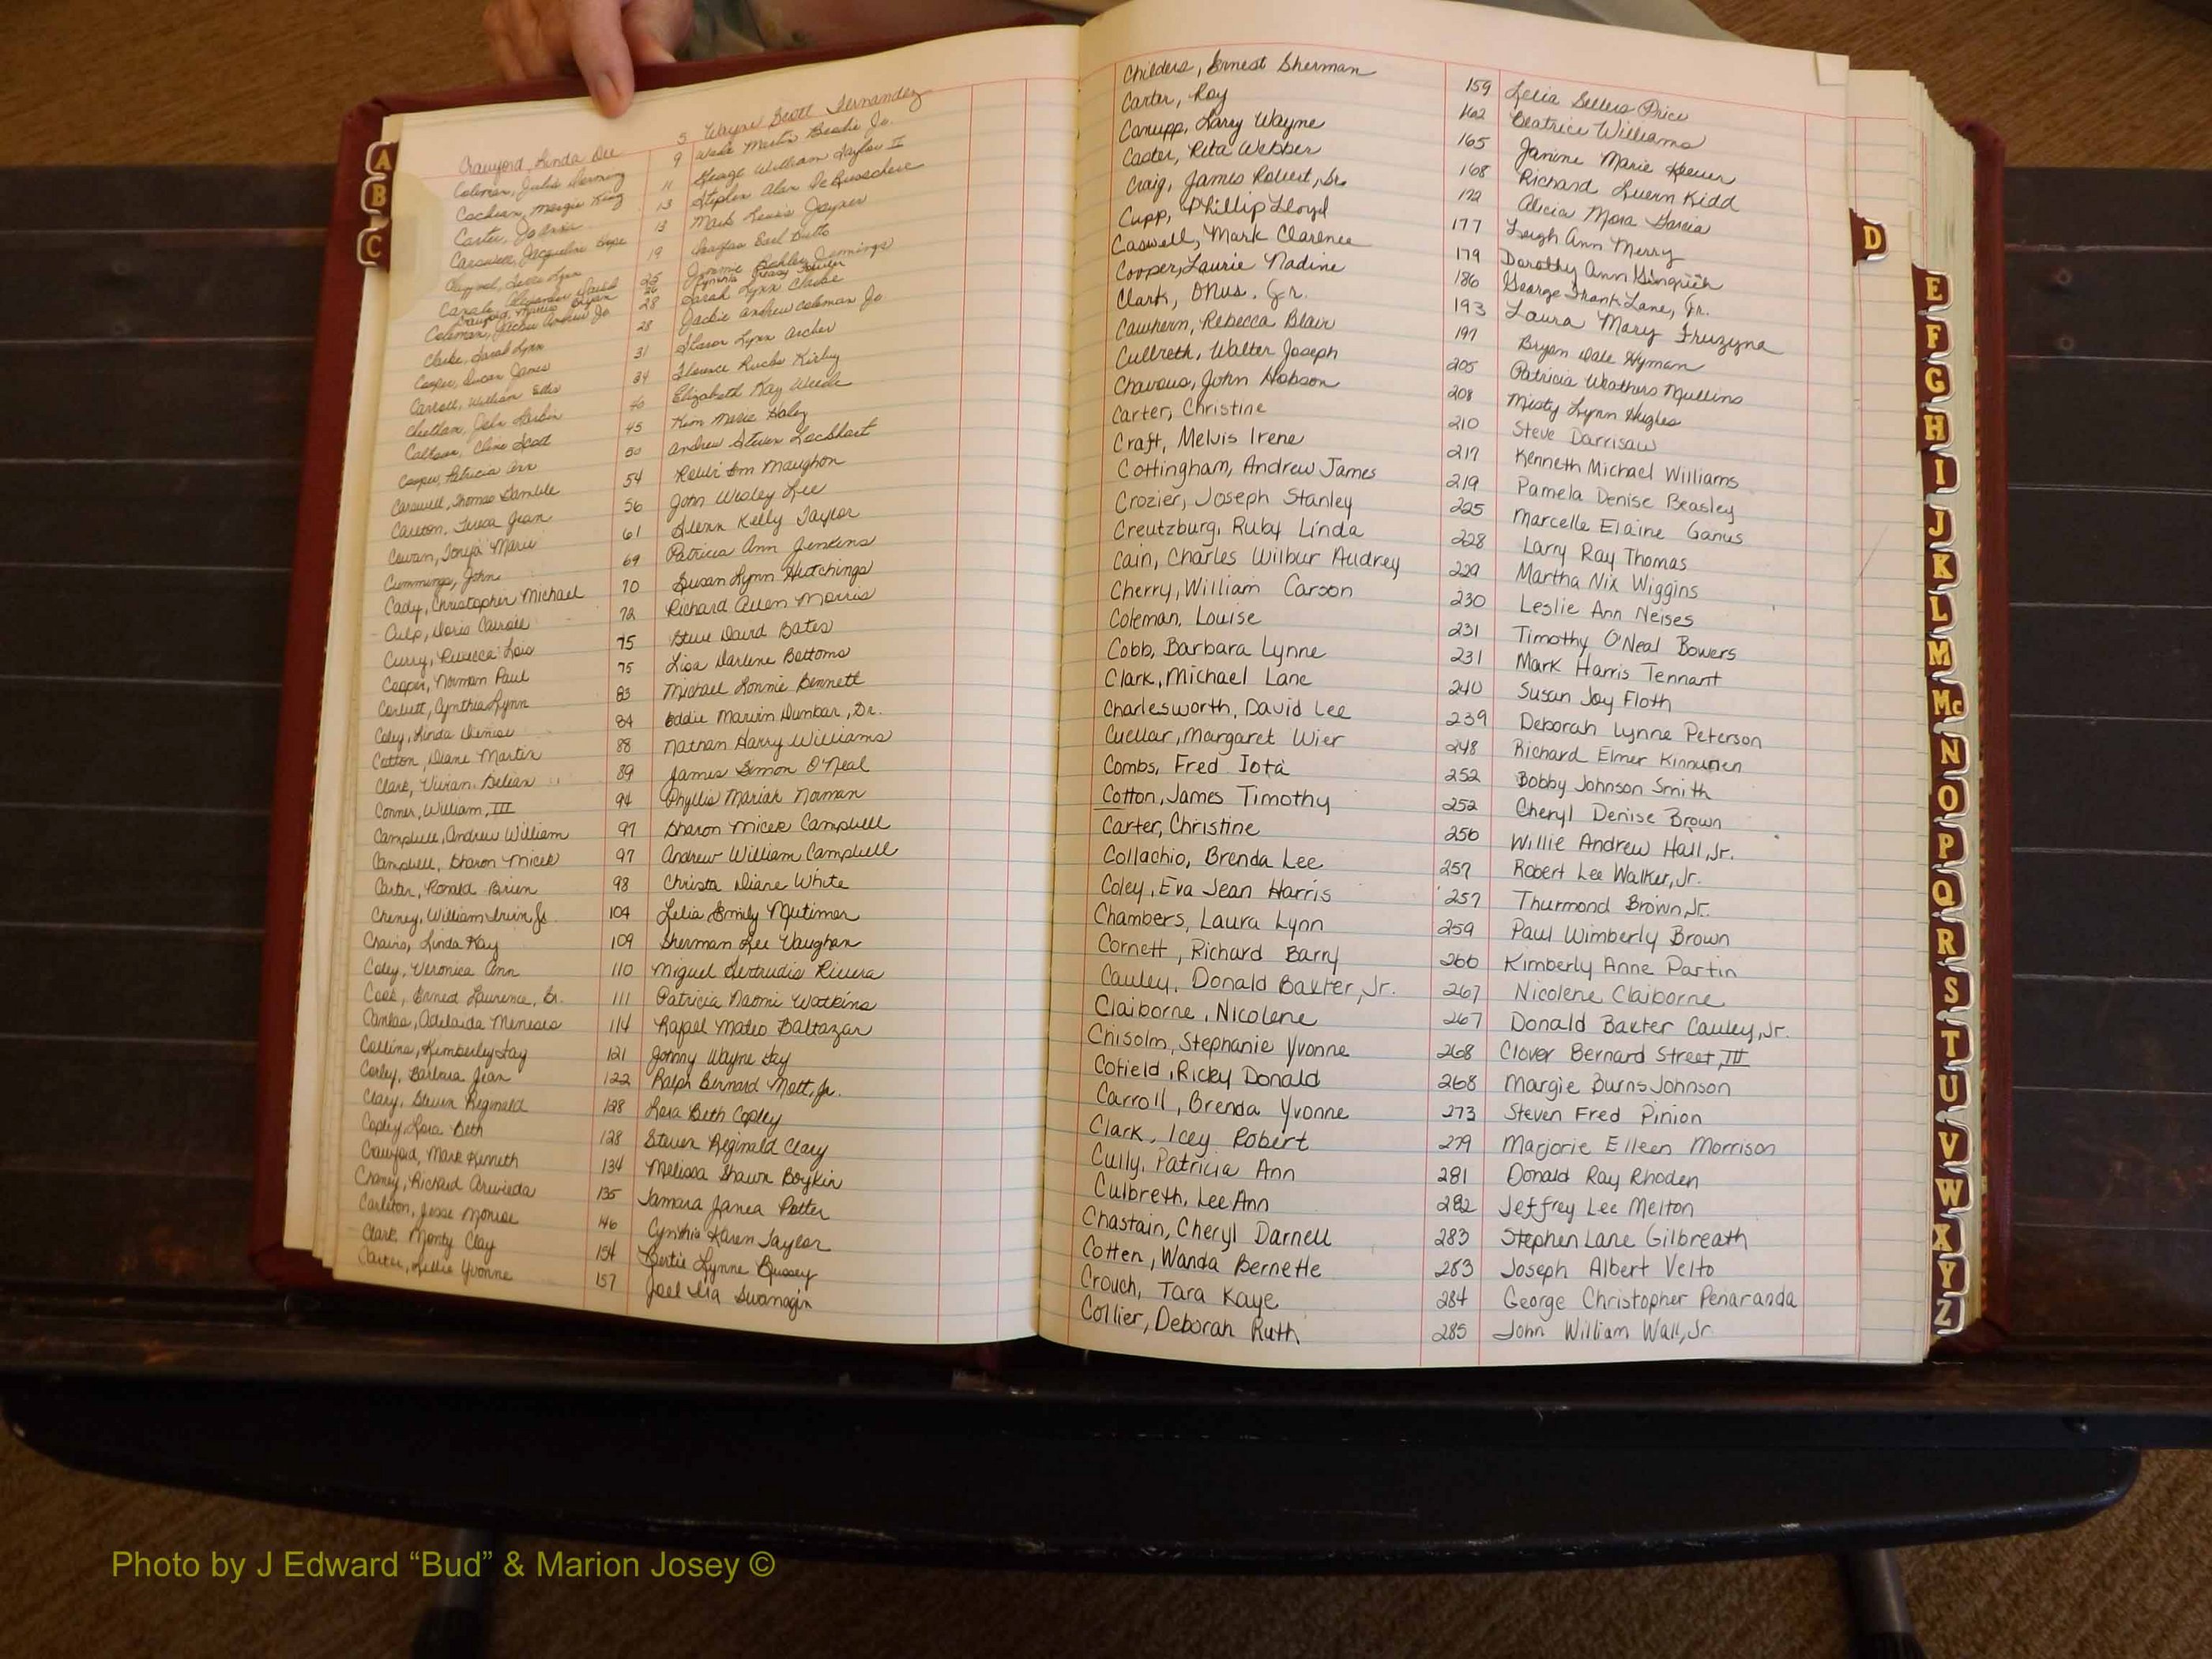 Crawford, Linda Dee 5 Wayne Scott Fernandez
Coleman, Julie 9 Wade Martin Beadie Jr.
Cochran, Margie King 11 George William Taylor II
Carter, Jo Ann 13 Stephen Alan DeBusschere
Carswell, Jacqueline Hope 13 Mark Lewis Joyner
19 Douglas Earl Butts
Canale, Alexander David 25 Jimmie Jennings
Crawford, Marcus Bryan 26
Coleman, Jackie Andrew Jr 28 Sarah Lynn Clarke
Clarke, Sarah Lynn 28 Jackie Andrew Coleman Jr
Cooper, James 31 Sharon Lynn Archer
Carroll, William Ellis 34 Florence Rucks Kirby
Cheatham, John 40 Elizabeth Kay Weede
Calhoun, Cline Scott 45 Kim Marie Haley
Cooper, Patricia Ann 50 Andrew Steven Lockhart
Carswell, Thomas Gamble 54 Maughon
Carlton, Teresa Jean 56 John Wesley Lee
Cowan, Tonya Marie 61 Glenn Kelly Taylor
Cummings, John 69 Patricia Ann Jenkins
Cady, Christopher Michael 70 Susan Lynn Hutchings
Culp, Doris Carroll 72 Richard Allen Morris
Curry, Rebecca Lois 75 Steve David Bates
Cooper, Norman Paul 75 Lisa Darlene Bottoms
Corbett, Cynthia Lynn 83 Michael Lonnie Bennett
Coley, Linda Denise 84 Eddie Marvin Dunbar, Sr.
Cotton, Diane Martin 88 Nathan Harry Williams
Clark, Vivian 89 James Simon O'Neal
Conner, William, III 94 Phyllis Mariah Norman
Campbell, Andrew William 97 Sharon Micek Campbell
Campbell, Sharon Micek 97 Andrew William Campbell
Carter, Ronald Brien 98 Christa Diane White
Cheney, William Irvin, Jr. 104 Lelia Emily Mutimer
Chairs, Linda Kay 109 Sherman Lee Vaughan
Coley, Veronica Ann 110 Miguel Gertrudis Rivera
Cook, Ernest Laurence, Sr. 111 Patricia Naomi Watkins
Canlas, Adelaida Meneses 114 Rafael Mateo Baltazar
Collins, Kimberly Fay 121 Johnny Wayne Fay
Corley, Barbara Jean 122 Ralph Bernard Mott, Jr.
Clary, Steven Reginald 128 Lora Beth Copley
Copley, Lora Beth 128 Steven Reginald Clary
Crawford, Mark Kenneth 134 Melissa Shawn Boykin
Chaney, Richard 135 Tamara Janea Potter
Carlton, Jesse Monroe 146 Cynthia Karen Taylor
Clark, Monty Clay 154 Bertie Lynne Bussey
Carter, Lillie Yvonne 157 Joel Ira Swanagin
Childers, Ernest Sherman 159 Lelia Sellers Price
Carter, Roy 162 Beatrice Williams
Canupp, Larry Wayne 165 Janine Marie
Caster, Rita Webber 168 Richard Luern Kidd
Craig, James Robert, Sr. 172 Alicia Mora Garcia
Cupp, Phillip Lloyd 177 Leigh Ann Merry
Caswell, Mark Clarence 179 Dorothy Ann Gingrich
Cooper, Laurie Nadine 186 George Frank Lane, Jr.
Clark, Onus. Jr. 193 Laura Mary Fruzyna
Cawhern, Rebecca Blair 197 Bryan Dale Hyman
Cullreth, Walter Joseph 205 Patricia Weathers Mullins
Chavous, John Hobson 208 Misty Lynn Hughes
Carter, Christine 210 Steve Darrisaw
Craft, Melvis Irene 217 Kenneth Michael Williams
Cottingham, Andrew James 219 Pamela Denise Beasley
Crozier, Joseph Stanley 225 Marcelle Elaine Ganus
Creutzburg, Ruby Linda 228 Larry Ray Thomas
Cain, Charles Wilbur Audrey 229 Martha Nix Wiggins
Cherry, William Carson 230 Leslie Ann Neises
Coleman, Louise 231 Timothy O'Neal Bowers
Cobb, Barbara Lynne 231 Mark Harris Tennant
Clark, Michael Lane 240 Susan Joy Floth
Charlesworth, David Lee 239 Deborah Lynne Peterson
Cuellar, Margaret Wier 248 Richard Elmer Kinnunen
Combs, Fred Iota 252 Bobby Johnson Smith
Cotton, James Timothy 252 Cheryl Denise Brown
Carter, Christine 256 Willie Andrew Hall, Jr.
Collachio, Brenda Lee 257 Robert Lee Walker, Jr.
Coley, Eva Jean Harris 257 Thurmond Brown, Jr.
Chambers, Laura Lynn 259 Paul Wimberly Brown
Cornett, Richard Barry 266 Kimberly Anne Partin
Cauley, Donald Baxter, Jr. 267 Nicolene Claiborne
Claiborne, Nicolene 267 Donald Baxter Cauley, Jr.
Chisolm, Stephanie Yvonne 268 Clover Bernard Street, III
Cofield, Ricky Donald 268 Margie Burns Johnson
Carroll, Brenda Yvonne 273 Steven Fred Pinion
Clark, Icey Robert 279 Marjorie Eileen Morrison
Cully, Patricia Ann 281 Donald Ray Rhoden
Culbreth, Lee Ann 282 Jeffrey Lee Melton
Chastain, Cheryl Darnell 283 Stephen Lane Gilbreath
Cotten, Wanda Bernette 283 Joseph Albert Velto
Crouch, Tara Kaye 284 George Christopher Penaranda
Collier, Deborah Ruth 285 John William Wall, Jr
A
B
C
D
E
F
G
H
I
J
K
L
M
Mc
N
O
P
Q
R
S
T
U
V
W
X
Y
Z
Photo by J Edward “Bud” & Marion Josey ©